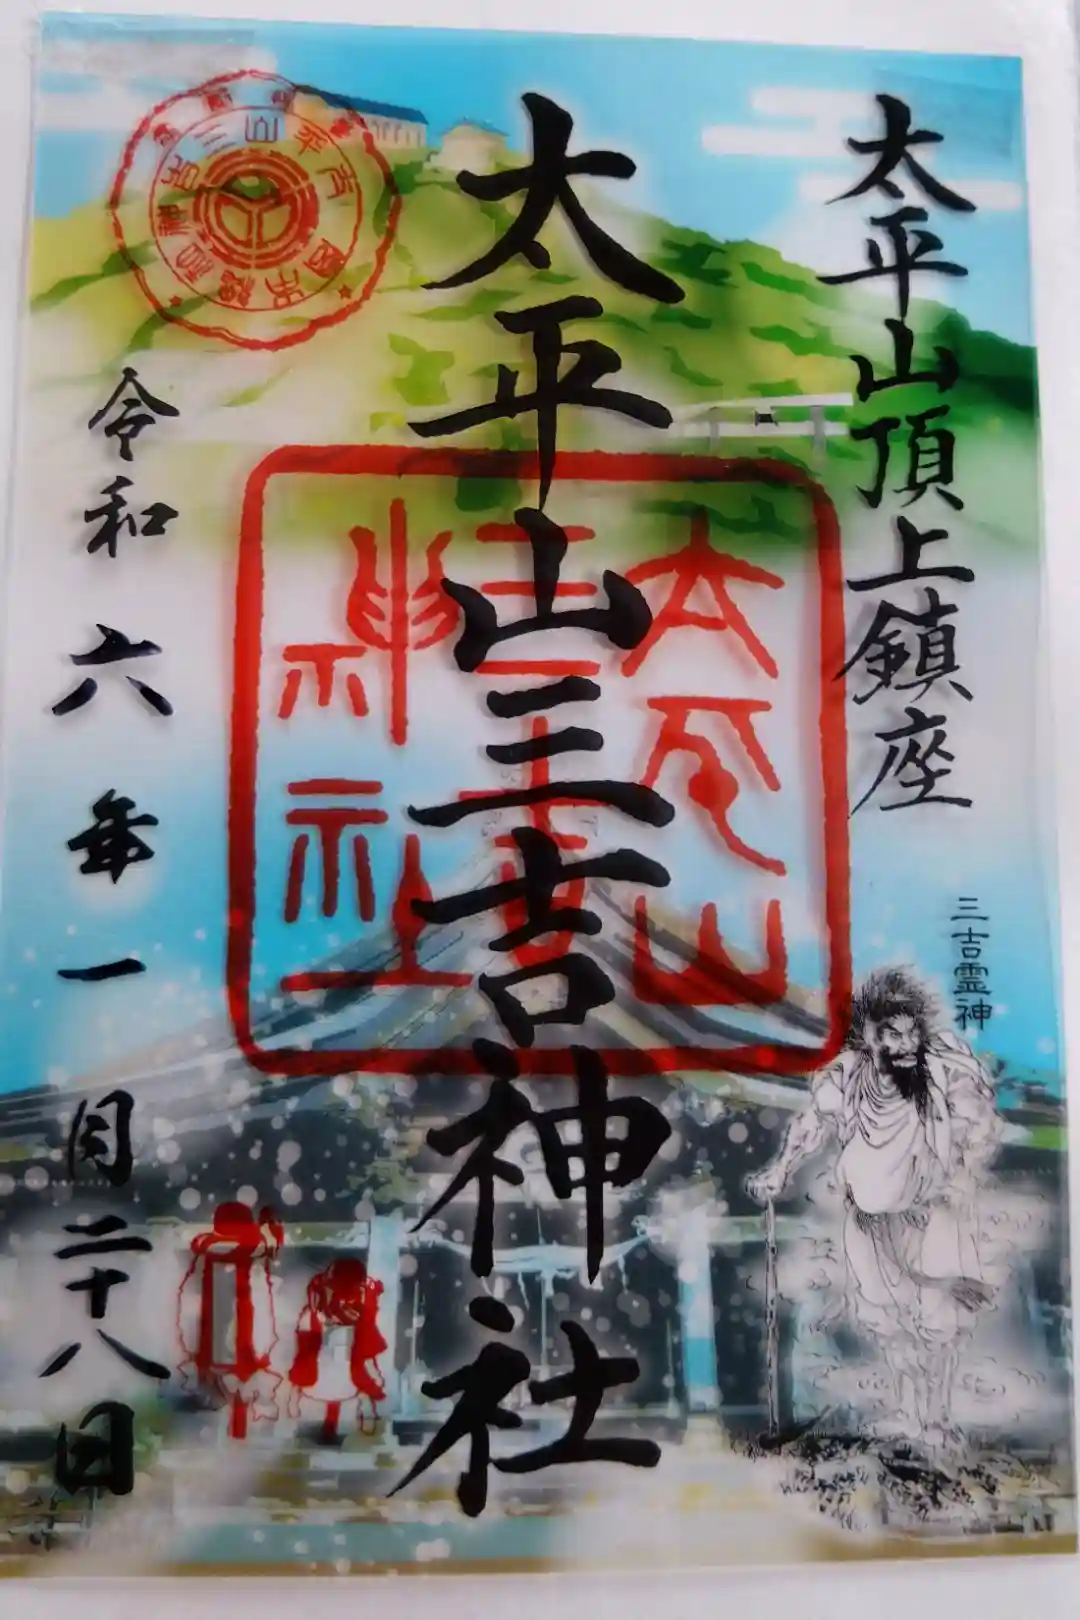 太平山頂上鎮座
三吉霊神
太平山三吉神社
太平山
神社
令和六年一月二十八日